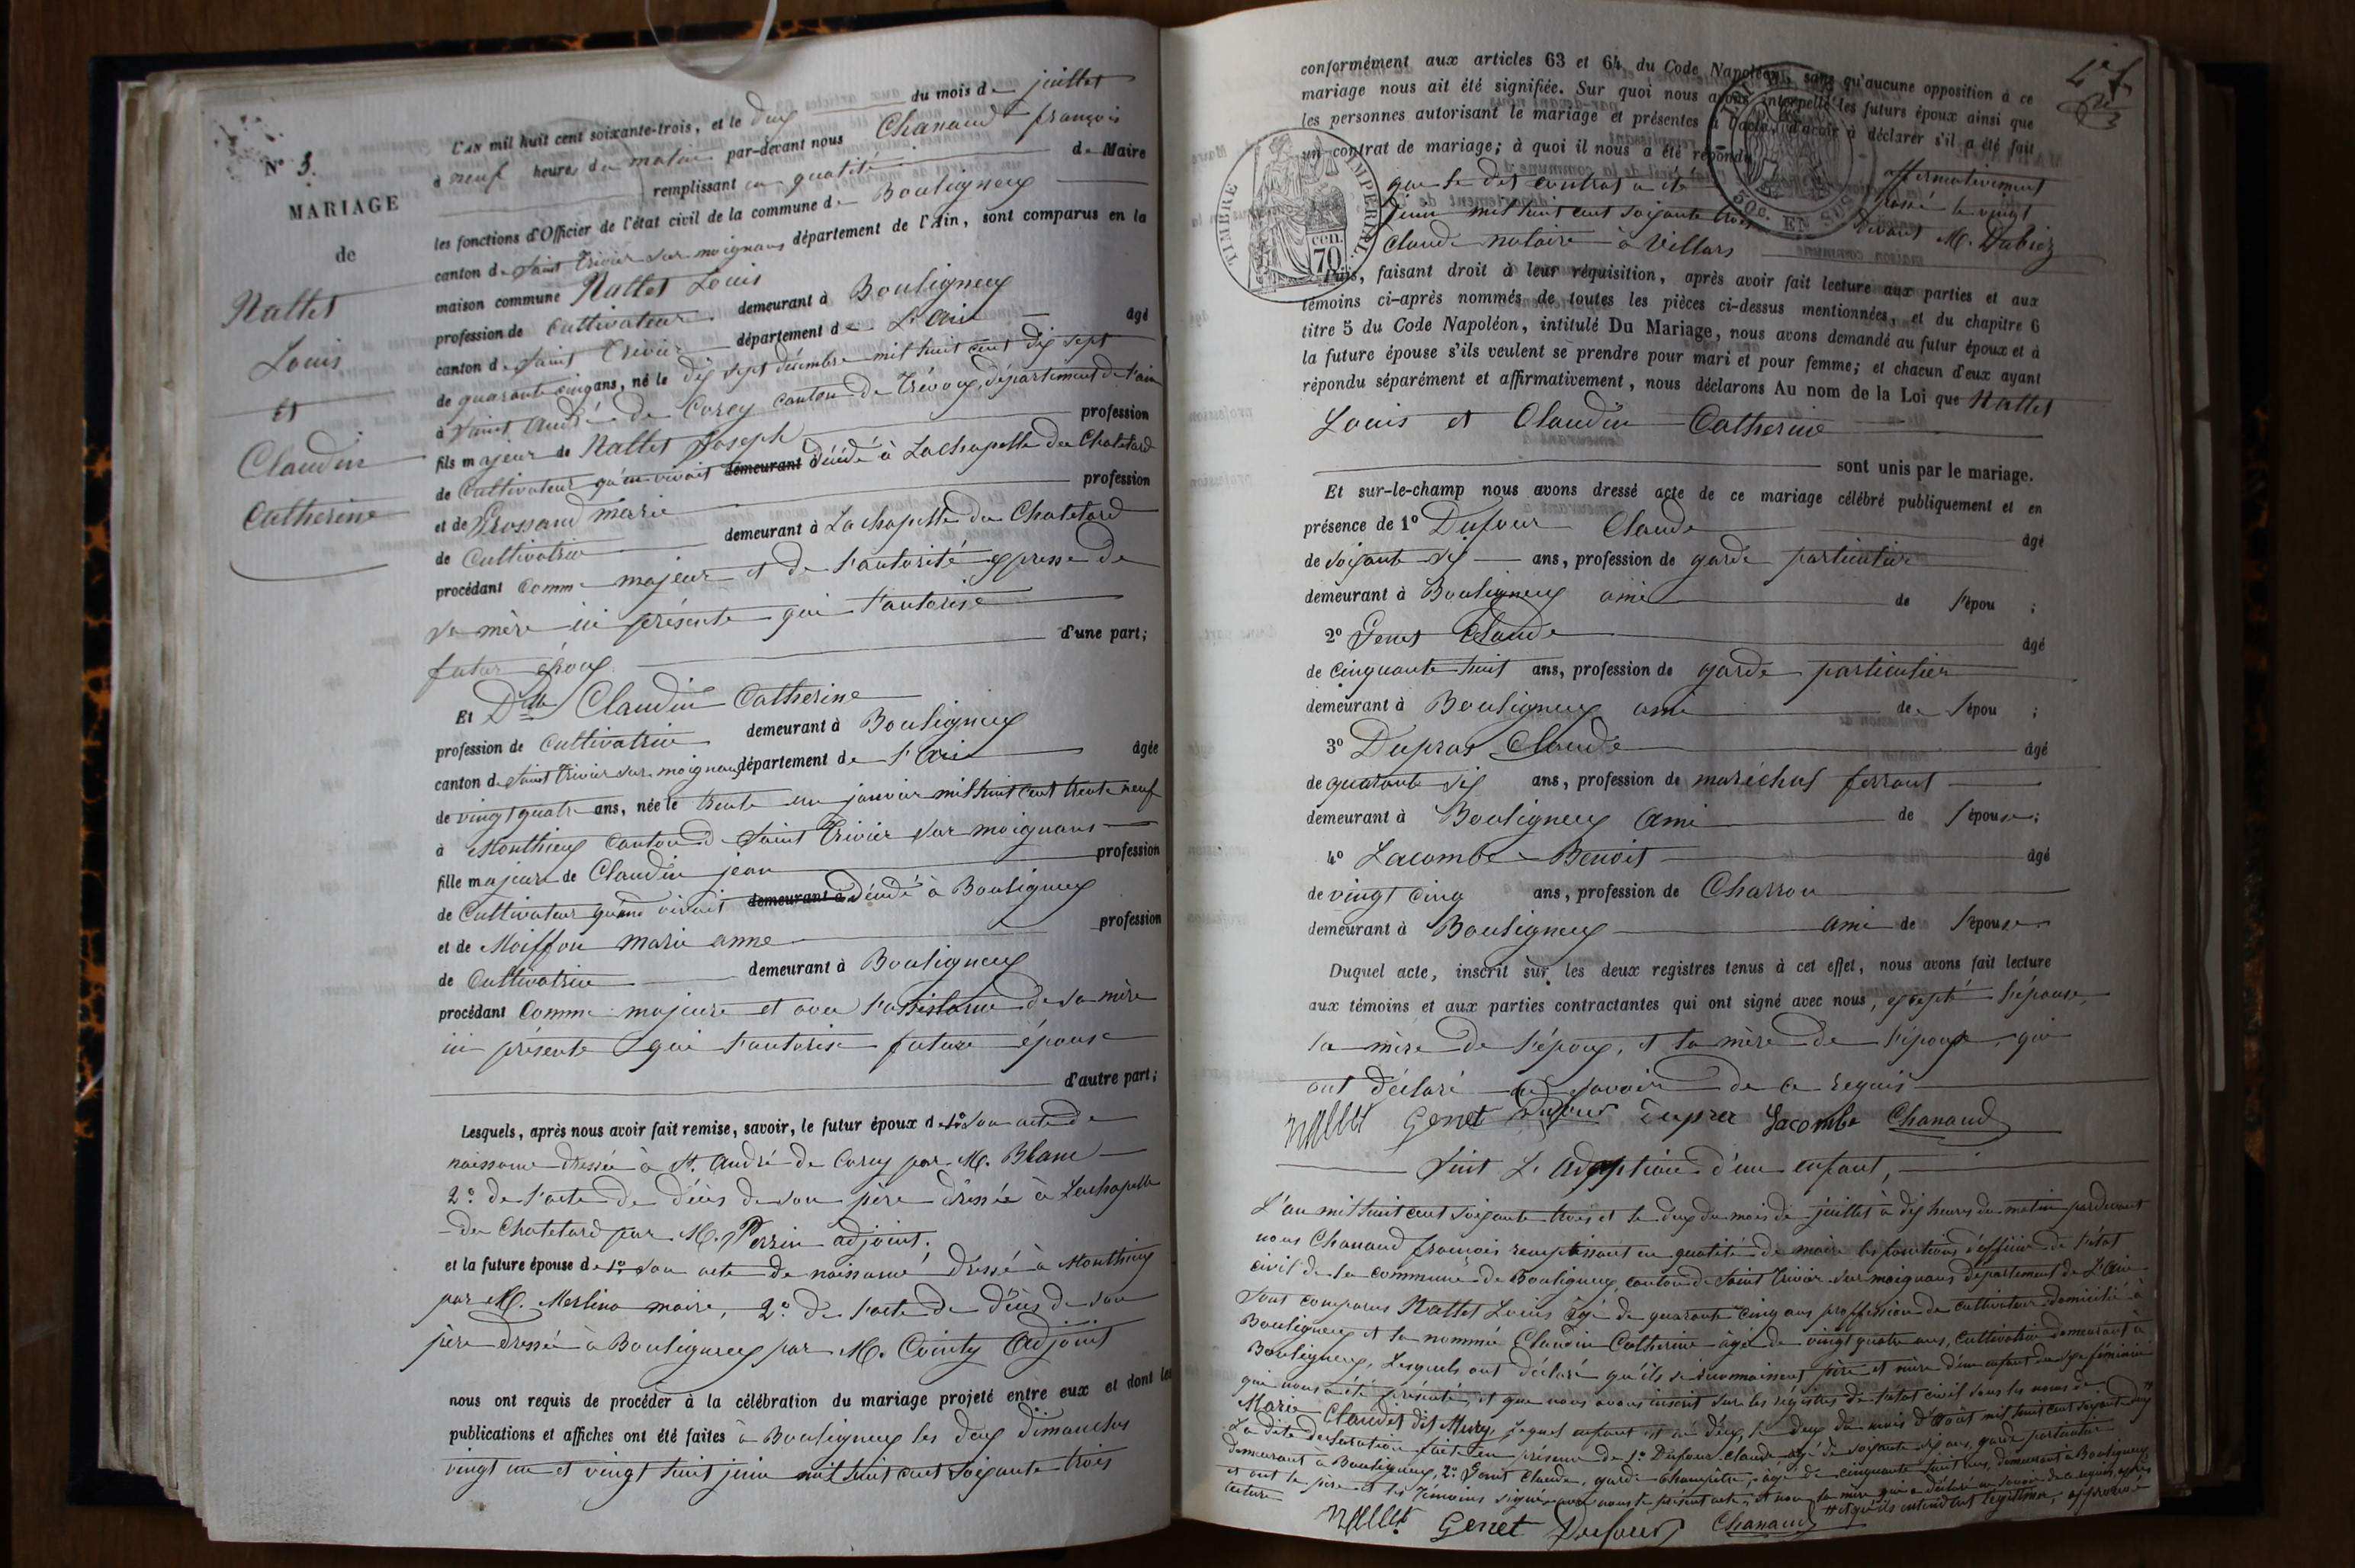 N° 3.
MARIAGE
de
Nallet
Louis
et
Claudin
Catherine
L'AN mil huit cent soixante-trois, et le deux du mois de juillet
à neuf heures du matin par-devant nous Chanaud françois
remplissant en qualité de Maire
les fonctions d'Officier de l'état civil de la commune de Bouligneux
canton de Saint Trivier sur moignans département de l'Ain, sont comparus en la
maison commune Nallet Louis
profession de Cultivateur demeurant à Bouligneux
canton de Saint Trivier département de L'Ain âgé
de quarante cinq ans, né le dix sept décembre mil huit cent dix sept
à Saint André de Corcy canton de Trévoux département de l'ain
fils majeur de Nallet Joseph profession
de Cultivateur quand vivait demeurant décédé à Lachapelle du Chatelard
et de Brossand marie profession
de Cultivatrice demeurant à La chapelle du Chatelard
procédant Comme majeur et de l'autorité expresse de
sa mère ici présente qui l'autorise
futur époux d'une part;
Et Dlle Claudin Catherine
profession de Cultivatrice demeurant à Bouligneux
canton de Saint Trivier sur moignans département de l'Ain âgée
de vingt quatre ans, née le trente un janvier mil huit cent trente neuf
à Monthieux Canton de Saint Trivier sur moignans
fille majeure de Claudin jean profession
de Cultivateur quand vivait demeurant à décédé à Bouligneux
et de Moiffon marie anne profession
de Cultivatrice demeurant à Bouligneux
procédant Comme majeure et avec l'assistance de sa mère
ici présente qui l'autorise future épouse
d'autre part;
Lesquels, après nous avoir fait remise, savoir, le futur époux de 1° son acte de
naissance dressée à St. André de Corcy par M. Blanc
2° de l'acte de décès de son père dressée à Lachapelle
du Chatelard par M. Perrin adjoint.
et la future épouse de 1° son acte de naissance dressé à Monthieux
par M. Merlino maire, 2° de l'acte de décès de son
père dressée à Bouligneux par M. Cointy Adjoint
nous ont requis de procéder à la célébration du mariage projeté entre eux et dont les
publications et affiches ont été faites à Bouligneux les deux dimanches
vingt un et vingt huit juin mil huit cent soixante trois
conformément aux articles 63 et 64 du Code Napoléon, sans qu'aucune opposition à ce
mariage nous ait été signifiée. Sur quoi nous avons interpellé les futurs époux ainsi que
les personnes autorisant le mariage et présentes à l'acte, d'avoir à déclarer s'il a été fait
un contrat de mariage; à quoi il nous a été répondu affirmativement
que le dit contrat a été passé le vingt
juin mil huit cent soixante trois devant M. Dubiez
Claude notaire à Villars
TIMBRE IMPERIAL
70
50c. EN SUS
Puis, faisant droit à leur réquisition, après avoir fait lecture aux parties et aux
témoins ci-après nommés de toutes les pièces ci-dessus mentionnées, et du chapitre 6
titre 5 du Code Napoléon, intitulé Du Mariage, nous avons demandé au futur époux et à
la future épouse s'ils veulent se prendre pour mari et pour femme; et chacun d'eux ayant
répondu séparément et affirmativement, nous déclarons Au nom de la Loi que Nallet
Louis et Claudin Catherine
sont unis par le mariage.
Et sur-le-champ nous avons dressé acte de ce mariage célébré publiquement et en
présence de 1° Dufour Claude âgé
de soixante six ans, profession de garde particulier
demeurant à Bouligneux ami de l'épou ;
2° Genet Claude âgé
de cinquante huit ans, profession de garde particulier
demeurant à Bouligneux ami de l'épou ;
3° Dupras Claude âgé
de quarante six ans, profession de maréchal ferrant
demeurant à Bouligneux Ami de l'épouse;
4° Lacombe Benoit âgé
de vingt cinq ans, profession de Charron
demeurant à Bouligneux ami de l'épouse
Duquel acte, inscrit sur les deux registres tenus à cet effet, nous avons fait lecture
aux témoins et aux parties contractantes qui ont signé avec nous, excepté l'épouse,
la mère de l'époux, et la mère de l'épouse, qui
ont déclaré ne savoir de ce requis
nallet Genet Dufour Duprat Lacombe Chanaud
Suit L'Adoption d'un enfant,
L'an mil huit cent soixante trois et le deux du mois de juillet à dix heures du matin pardevant
nous Chanaud françois remplissant en qualité de maire les fonctions d'officier de l'état
civil de la commune de Bouligneux, canton de Saint Trivier sur moignans département de L'Ain
sont comparus Nallet Louis âgé de quarante cinq ans proffession de cultivateur domicilié à
Bouligneux et la nommée Claudin Catherine âgée de vingt quatre ans, cultivatrice demeurant à
Bouligneux, Lesquels ont déclaré qu'ils se reconnaissent père et mère d'un enfant du sexe féminin
que nous a été présenté, et que nous avons inscrit sur les registres de l'état civil sous les noms de
Marie Claudin dit lequel enfant est né à deux, le deux du mois d'Août mil huit cent soixante deux
La dite déclaration faite en présence de 1° Dufour Claude âgé de soixante six ans, garde particulier
demeurant à Bouligneux, 2° Genet Claude, garde champêtre, âgé de cinquante huit ans, demeurant à Bouligneux
et ont le père et les témoins signé avec nous le présent acte, et non la mère qui a déclaré ne savoir de ce requis, après
lecture # et qu'ils entendent légitimer, approuvé
nallet Genet Dufour Chanaud